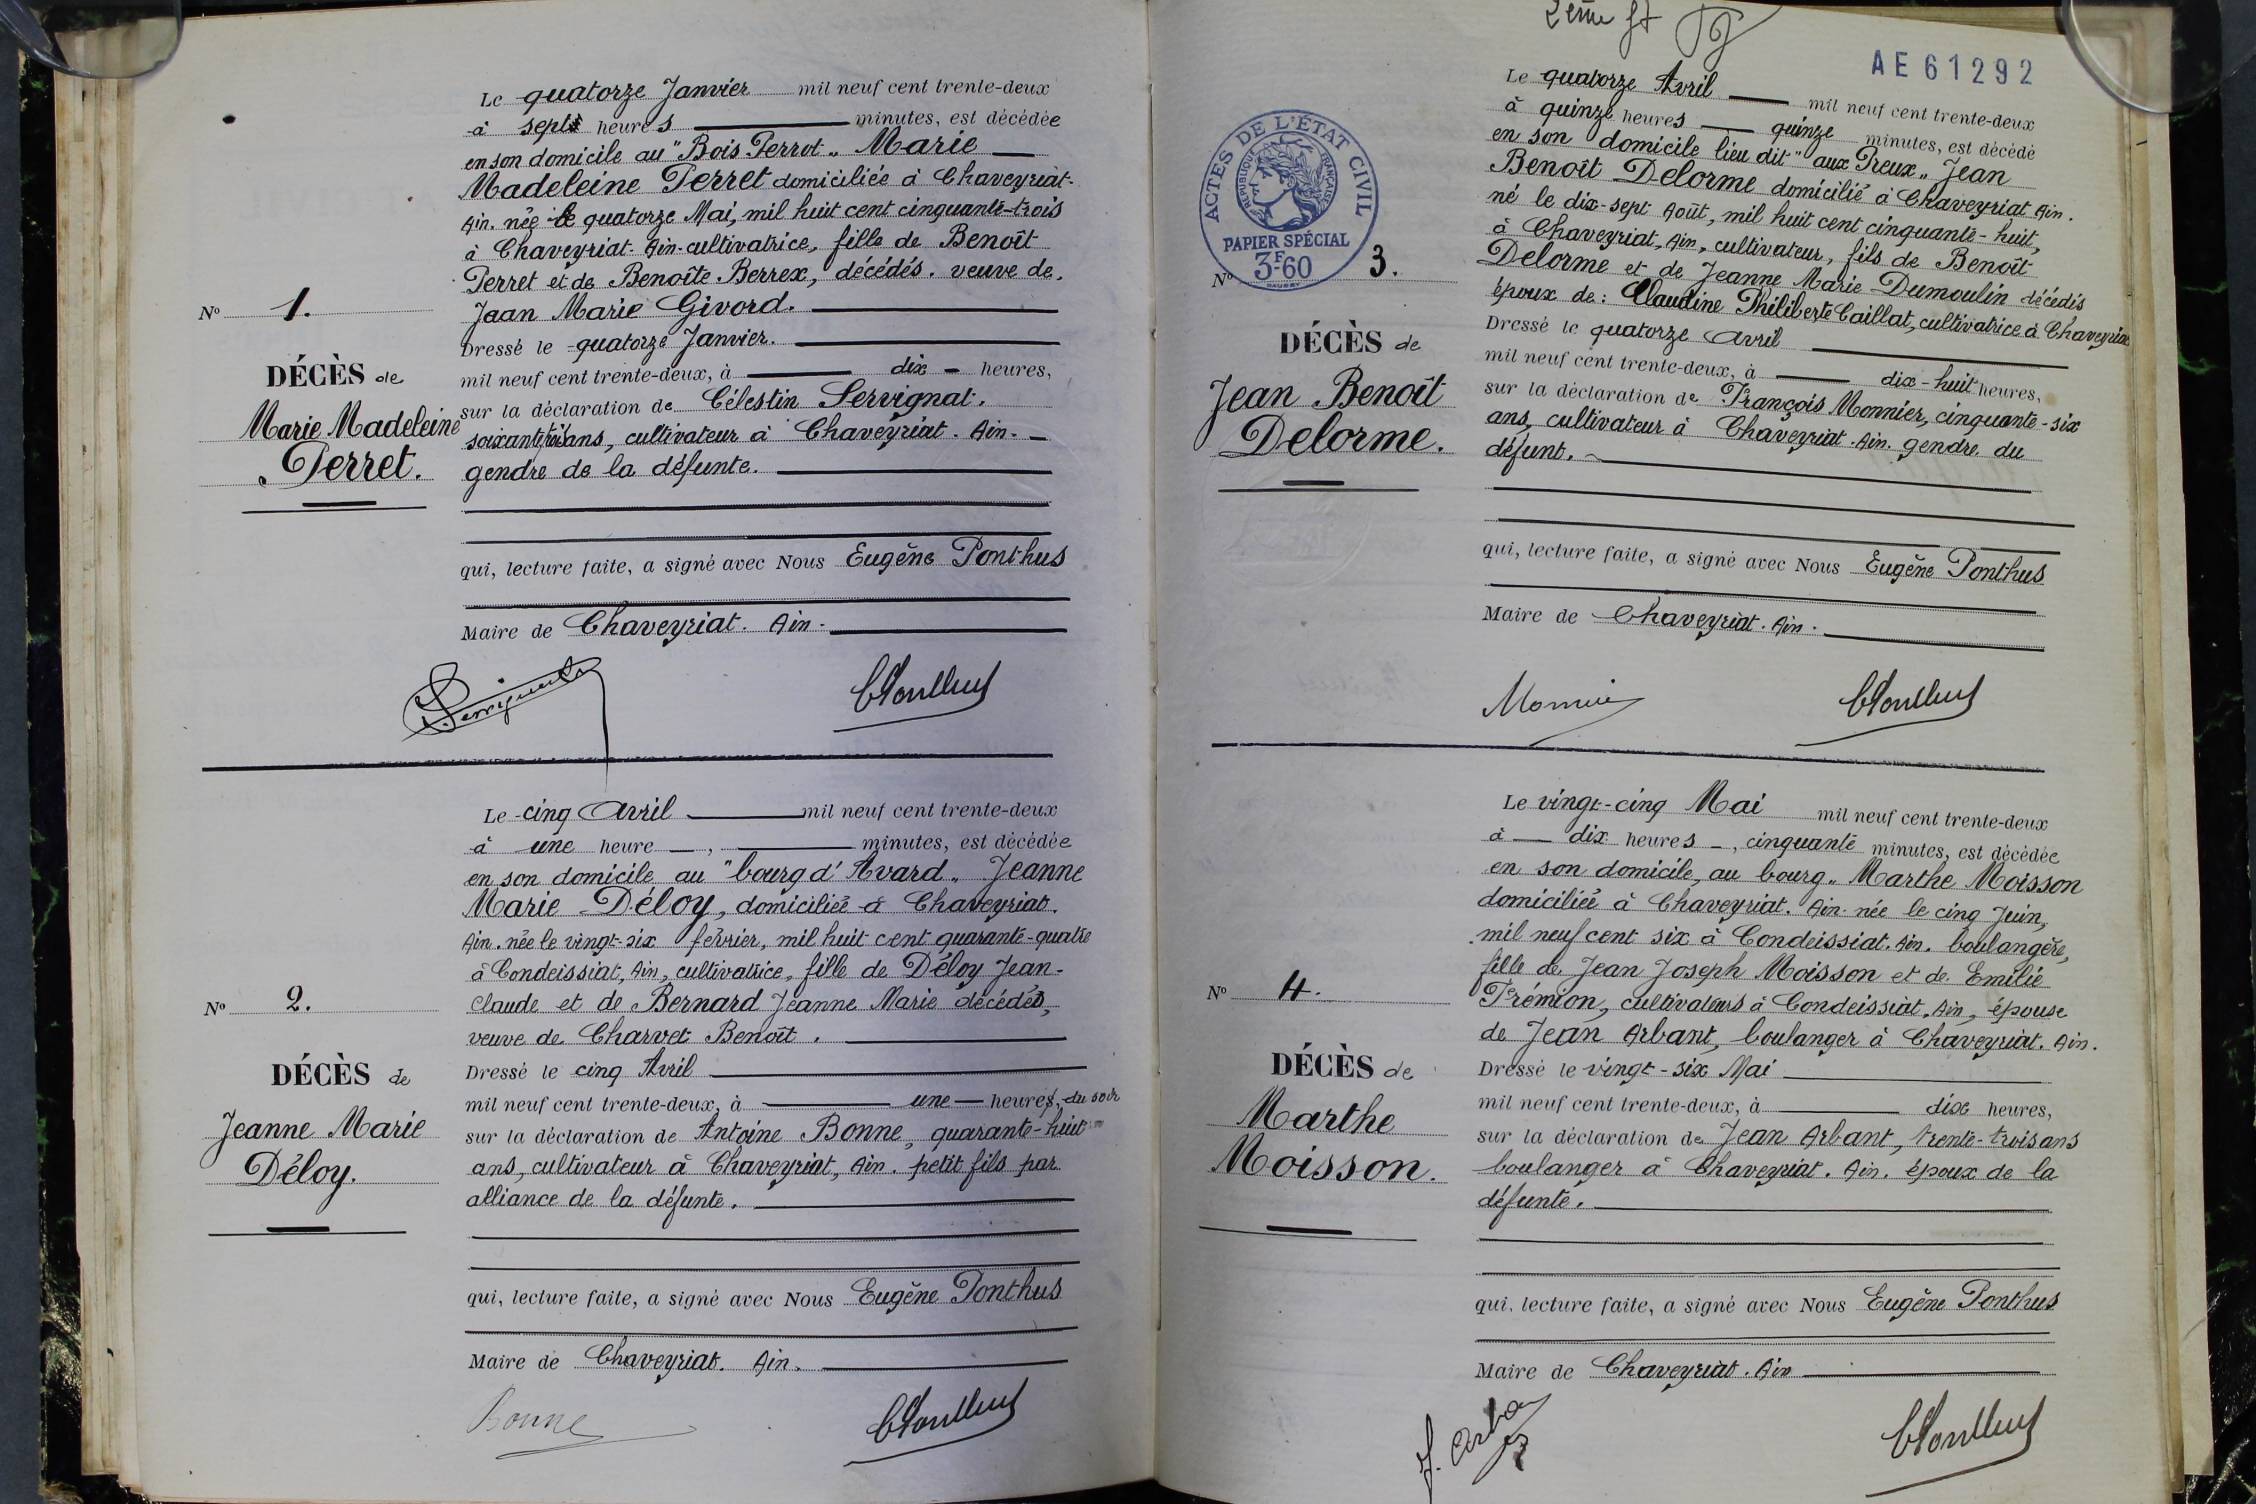 Le quatorze Janvier mil neuf cent trente-deux
à sept heures minutes, est décédée
en son domicile au "Bois Perrot" Marie
Madeleine Perret domiciliée à Chaveyriat-
Ain. née le quatorze Mai, mil huit cent cinquante-trois
à Chaveyriat. Ain. cultivatrice, fille de Benoît
Perret et de Benoîte Berrex, décédés. veuve de.
Jean Marie Givord.
Dressé le quatorze Janvier.
mil neuf cent trente-deux, à dix heures,
sur la déclaration de Célestin Servignat.
soixante trois ans, cultivateur à Chaveyriat. Ain.
gendre de la défunte.
qui, lecture faite, a signé avec Nous Eugène Ponthus
Maire de Chaveyriat. Ain.
No 1.
DÉCÈS de
Marie Madeleine
Perret.
Le cinq Avril mil neuf cent trente-deux
à une heure, minutes, est décédée
en son domicile au "bourg d'Avard" Jeanne
Marie Déloy, domiciliée à Chaveyriat.
Ain. née le vingt-six février, mil huit cent quarante-quatre
à Condeissiat, Ain, cultivatrice, fille de Déloy Jean-
Claude et de Bernard Jeanne Marie décédés,
veuve de Charvet Benoît.
Dressé le cinq Avril
mil neuf cent trente-deux, à une heures, du soir
sur la déclaration de Antoine Bonne, quarante-huit
ans, cultivateur à Chaveyriat, Ain. petit fils par
alliance de la défunte.
qui, lecture faite, a signé avec Nous Eugène Ponthus
Maire de Chaveyriat. Ain.
Bonne
No 2.
DÉCÈS de
Jeanne Marie
Déloy.
2ème ft
AE 61292
ACTES DE L'ÉTAT CIVIL
RÉPUBLIQUE FRANÇAISE
PAPIER SPÉCIAL
3F60
No 3.
DÉCÈS de
Jean Benoît
Delorme.
Le quatorze Avril mil neuf cent trente-deux
à quinze heures quinze minutes, est décédé
en son domicile lieu dit "aux Preux" Jean
Benoît Delorme domicilié à Chaveyriat Ain.
né le dix-sept Août, mil huit cent cinquante-huit,
à Chaveyriat, Ain, cultivateur, fils de Benoît
Delorme et de Jeanne Marie Dumoulin décédés
époux de: Claudine Philiberte Caillat, cultivatrice à Chaveyriat
Dressé le quatorze Avril
mil neuf cent trente-deux, à dix-huit heures,
sur la déclaration de François Monnier, cinquante-six
ans, cultivateur à Chaveyriat. Ain. gendre du
défunt.
qui, lecture faite, a signé avec Nous Eugène Ponthus
Maire de Chaveyriat. Ain.
Monnier
No 4.
DÉCÈS de
Marthe
Moisson.
Le vingt-cinq Mai mil neuf cent trente-deux
à dix heures, cinquante minutes, est décédée
en son domicile, au bourg" Marthe Moisson
domiciliée à Chaveyriat. Ain. née le cinq Juin,
mil neuf cent six à Condeissiat. Ain. boulangère,
fille de Jean Joseph Moisson et de Emilie
Trémion, cultivateurs à Condeissiat, Ain, épouse
de Jean Arbant, boulanger à Chaveyriat. Ain.
Dressé le vingt-six Mai
mil neuf cent trente-deux, à dix heures,
sur la déclaration de Jean Arbant, trente-trois ans
boulanger à Chaveyriat. Ain. époux de la
défunte.
qui, lecture faite, a signé avec Nous Eugène Ponthus
Maire de Chaveyriat. Ain
J. Arbant